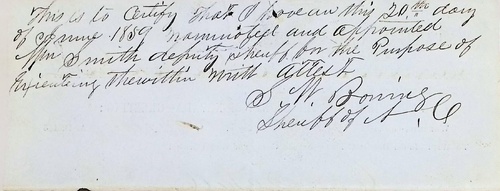 This is to Certify that I have on this 20th day
of June 1859 nominated and appointed
Wm Smith deputy sheriff for the Purpose of
Exicuting thewithin writt attest
S. W. Boning
Sheriff of A. C